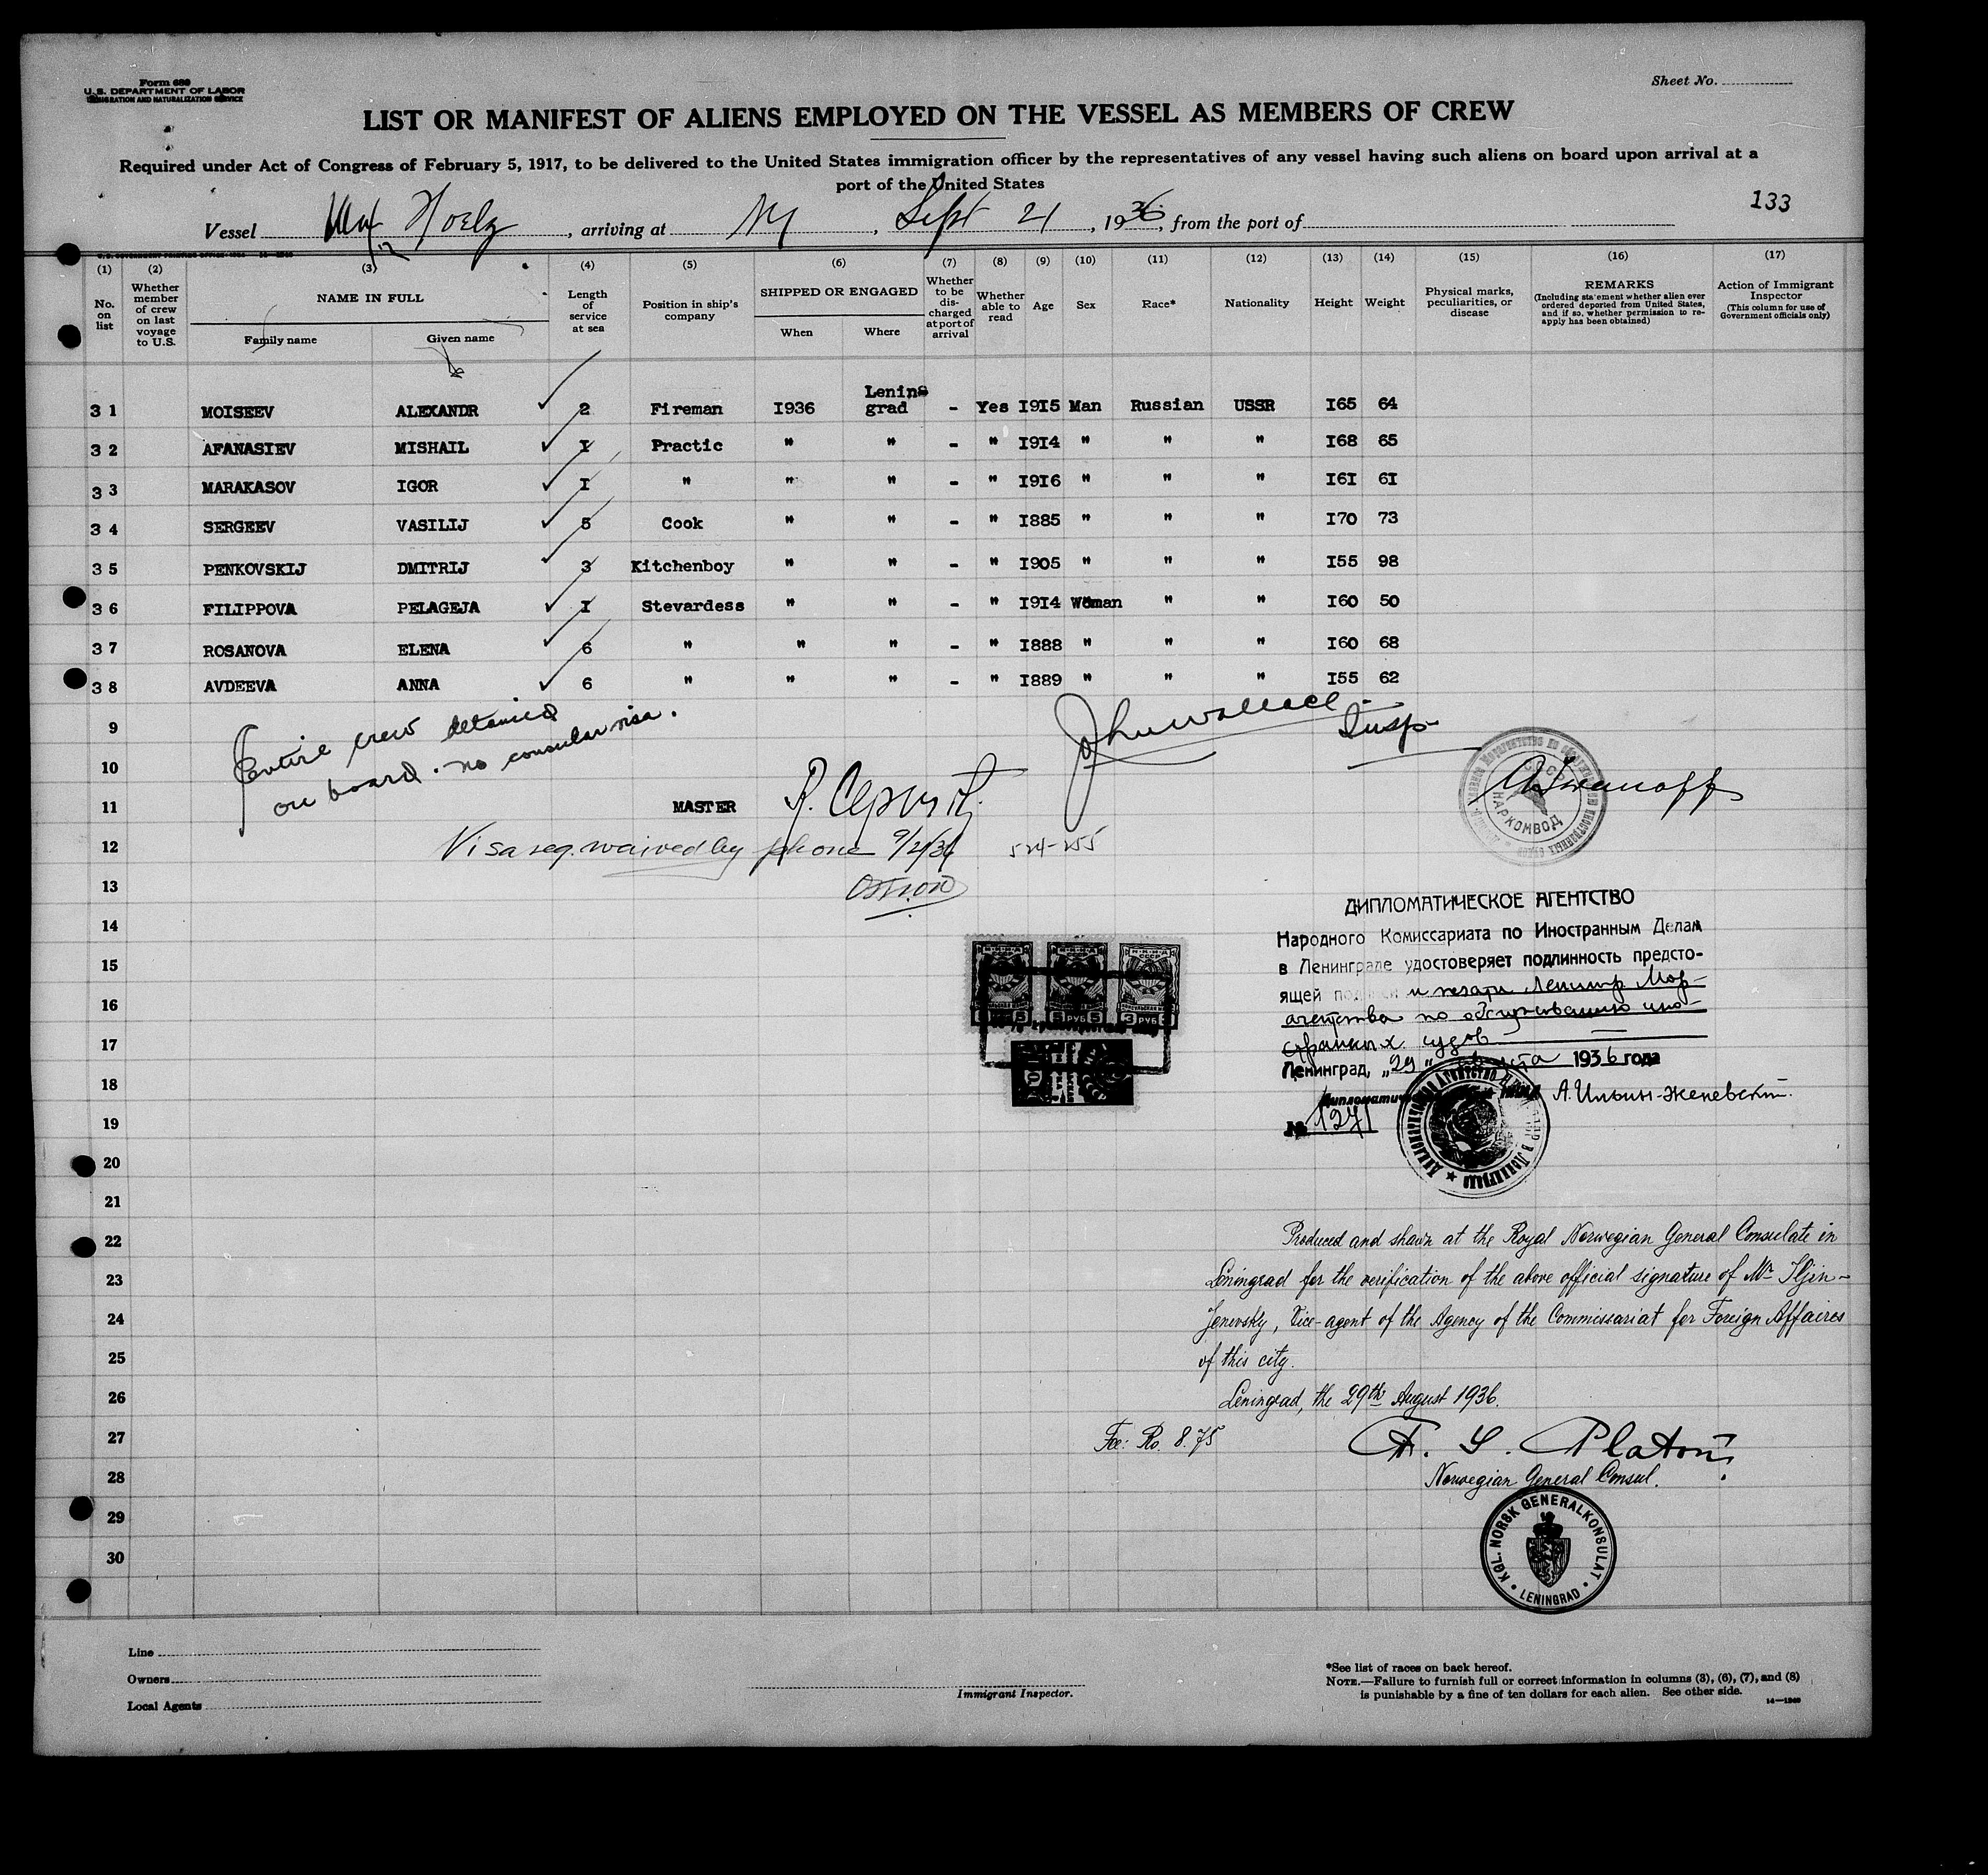 Form 689
U. S. DEPARTMENT OF LABOR
IMMIGRATION AND NATURALIZATION SERVICE
Sheet No.
LIST OR MANIFEST OF ALIENS EMPLOYED ON THE VESSEL AS MEMBERS OF CREW
Required under Act of Congress of February 5, 1917, to be delivered to the United States immigration officer by the representatives of any vessel having such aliens on board upon arrival at a
port of the United States
133
Vessel Max Hoelz, arriving at NY, Sept 21, 1936, from the port of
(1) (2) (3) (4) (5) (6) (7) (8) (9) (10) (11) (12) (13) (14) (15) (16) (17)
No. on list
Whether member of crew on last voyage to U.S.
NAME IN FULL
Family name
Given name
Length of service at sea
Position in ship's company
SHIPPED OR ENGAGED
When
Where
Whether to be discharged at port of arrival
Whether able to read
Age
Sex
Race*
Nationality
Height
Weight
Physical marks, peculiarities, or disease
REMARKS
(Including statement whether alien ever ordered deported from United States, and if so, whether permission to reapply has been obtained)
Action of Immigrant Inspector
(This column for use of Government officials only)
31 MOISEEV ALEXANDR 2 Fireman I936 Leningrad - Yes I9I5 Man Russian USSR I65 64
32 AFANASIEV MISHAIL I Practic " " - " I9I4 " " " I68 65
33 MARAKASOV IGOR I " " " - " I9I6 " " " I6I 6I
34 SERGEEV VASILIJ 5 Cook " " - " I885 " " " I70 73
35 PENKOVSKIJ DMITRIJ 3 Kitchenboy " " - " I905 " " " I55 98
36 FILIPPOVA PELAGEJA I Stevardess " " - " I9I4 Woman " " I60 50
37 ROSANOVA ELENA 6 " " " - " I888 " " " I60 68
38 AVDEEVA ANNA 6 " " " - " I889 " " " I55 62
9
Entire crew detained
on board. no consular visa.
John Wallace
Insp
10
11
MASTER
СССР
НАРКОМВОД
12
Visa req. waived by phone 9/21/36
13
14
15
16
17
18
19
20
21
22
23
24
25
26
27
28
29
30
ДИПЛОМАТИЧЕСКОЕ АГЕНТСТВО
Народного Комиссариата по Иностранным Делам
в Ленинграде удостоверяет подлинность предсто-
ящей подписи и печати Ленингр. Мор.
агентства по обслуживанию ино-
странных судов
Ленинград, „29 " августа 1936 года
А. Ильин-Женевский.
№ 1271
Н.К.И.Д.
СССР
5 РУБ 5
3 РУБ 3
Produced and shawn at the Royal Norwegian General Consulate in
Leningrad for the verification of the above official signature of Mr Iljin-
Jenevsky, Vice-agent of the Agency of the Commissariat for Foreign Affaires
of this city.
Leningrad, the 29th August 1936.
Fee: Ro. 8.75
Norwegian General Consul.
KGL. NORSK GENERALKONSULAT
LENINGRAD
Line
Owners
Local Agents
Immigrant Inspector.
*See list of races on back hereof.
NOTE.—Failure to furnish full or correct information in columns (3), (6), (7), and (8)
is punishable by a fine of ten dollars for each alien. See other side.
14—1940